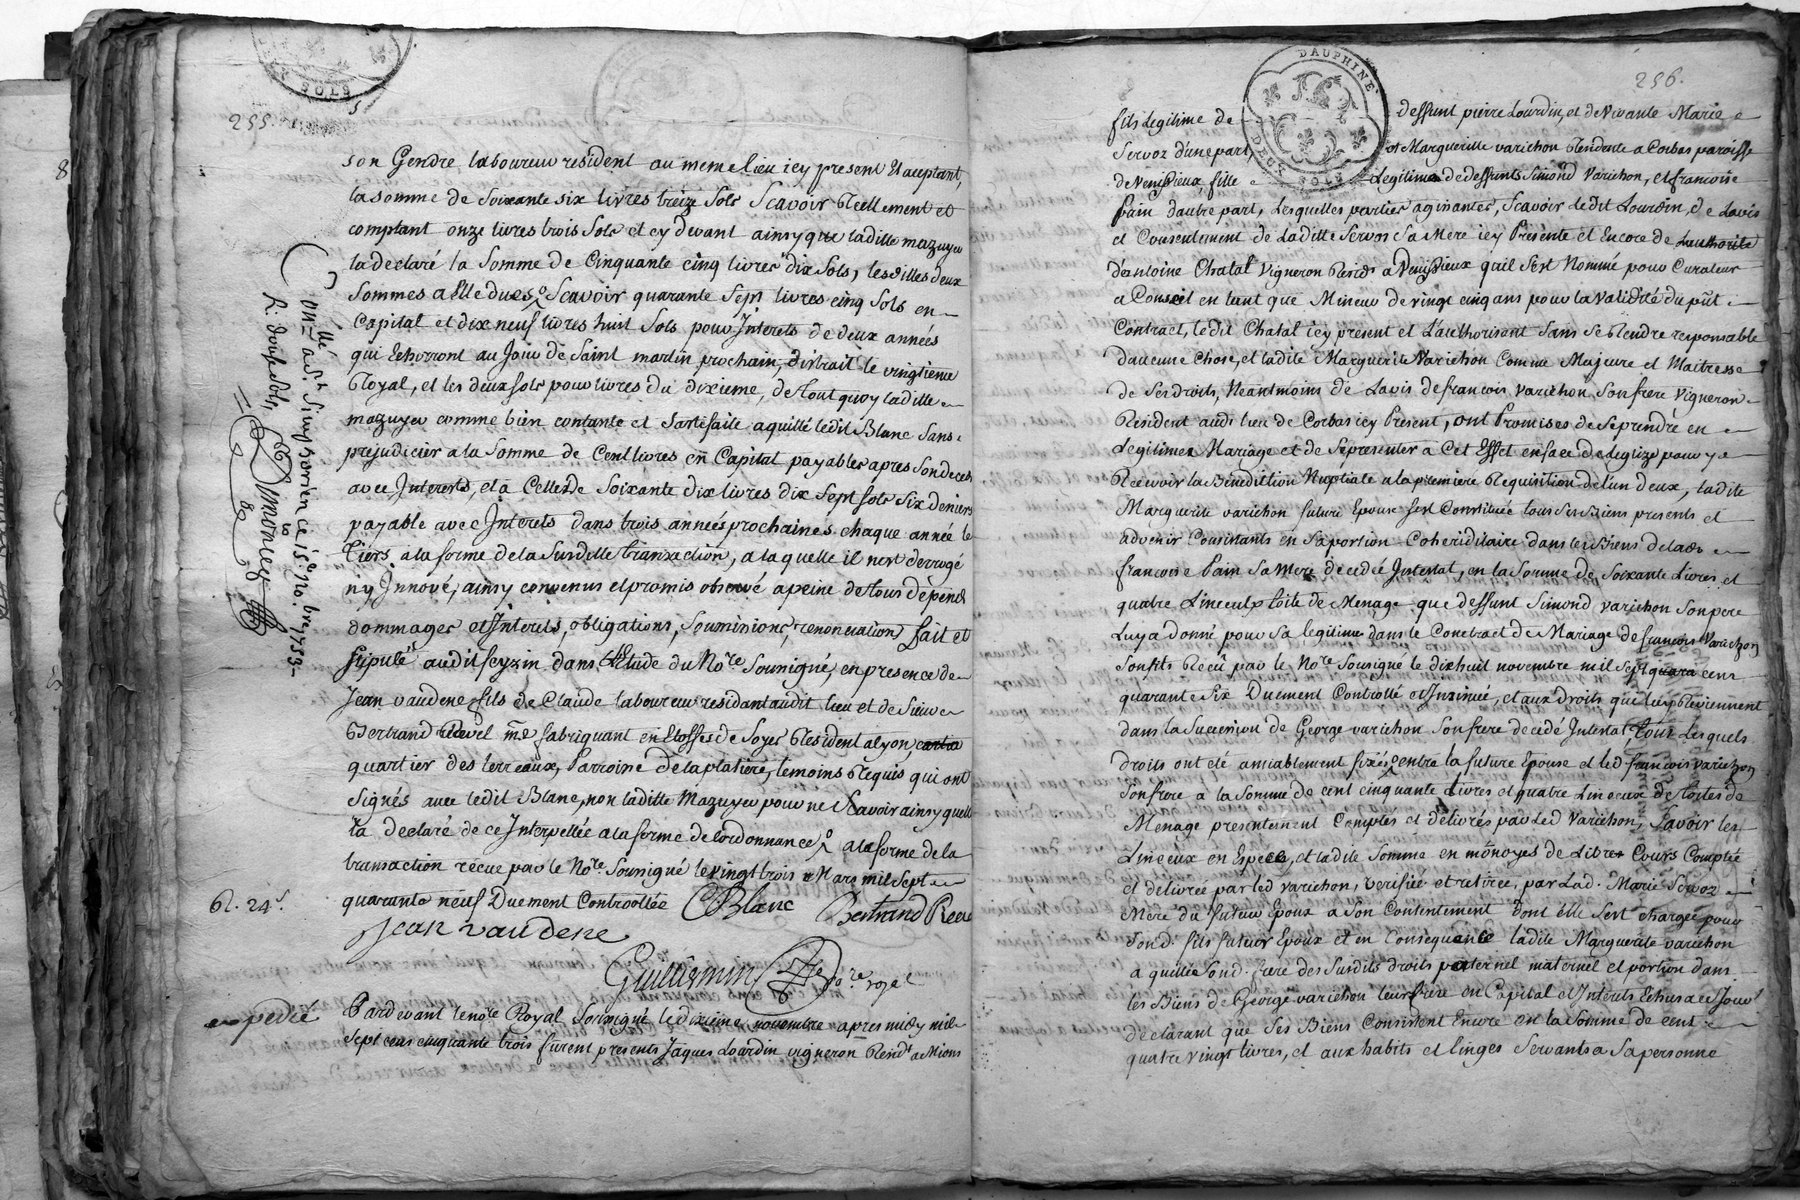 255.
son Gendre laboureur resident au meme lieu icy present et aceptant,
la somme de soixante six livres treize sols scavoir Reellement et
comptant onze livres trois sols et cy devant ainsy que laditte mazuyer
la declaré la somme de Cinquante cinq livres dix sols, lesdittes deux
sommes a elle dues, scavoir quarante sept livres cinq sols en
Capital et dix neuf livres huit sols pour Interets de deux années
qui Echorront au Jour de Saint martin prochain, distrait le vingtieme
Royal, et les deux sols pour livres du dixieme, de tout quoy laditte
mazuyer comme bien contante et satisfaite a quitté ledit Blanc sans
prejudicier a la somme de Cent livres en Capital payables apres son deces
avec Interets, et a Celle de soixante dix livres dix sept sols six deniers
payable avec Interets dans trois années prochaines chaque année le
tiers a la forme de la susditte transaction, a laquelle il n'est derrogé
ny Innové, ainsy convenus et promis observé a peine de tous dépends
dommages et Interets, obligations, soumissions, renonciations, fait et
stipulé audit feyzin dans L'Etude du No.re soussigné, en presence de
Jean vaudene fils de Claude laboureur residant audit lieu et de sieur
Bertrand Revel m.e fabriquant en Etoffes de soyes Resident a lyon,
quartier des terreaux, Parroisse de la platiere, temoins Requis qui ont
signés avec ledit Blanc, non laditte Mazuyer pour ne scavoir ainsy quelle
la declaré de ce Interpellée a la forme de l'ordonnance, a la forme de la
transaction recue par le No.re soussigné le vingt trois Mars mil sept
quarante neuf Duement Controollée CBlanc Bertrand Reve
Jean vaudene
Guillermin No.re royal
6l. 24s.
st Simphorien ce 15e 9bre 1753
R. douse sols,
expedié
Pardevant le no.re Royal soussigné le dixieme novembre apres midy mil
sept cens cinquante trois furent presents Jaques Lourdin vigneron Resid.t a Mions
DAUPHINÉ
DEUX SOLS
256.
fils legitime de deffunt pierre Lourdin, et de vivante Marie
Servoz d'une part, et Marguerite varichon Residente a Corbas paroisse
de Venissieux fille Legitime de deffunts Simond Varichon, et francoise
Pain d'autre part, Lesquelles parties agissantes, Scavoir ledit Lourdin, de Lavis
et Consentement de Laditte Servoz Sa Mere icy Presente et Encore de Lauthorité
d'antoine Chatal Vigneron Resid.t a Venissieux qu'il s'est Nommé pour Curateur
a Conseil en tant que Mineur de vingt cinq ans pour la Validité du pñt
Contract, ledit Chatal icy present et L'authorisent sans se Rendre responsable
d'aucune Chose, et ladite Marguerite Varichon Comme Majeure et Maitresse
de ses droits, Neantmoins de Lavis de francois varichon son frere Vigneron
Resident aud.t lieu de Corbas icy Present, ont Promises de se prendre en
Legitimes Mariage et de se presenter a Cet Effet en face de Leglize pour y
Recevoir la Benediction Nuptiale a la premiere Requisition de l'un deux, ladite
Marguerite varichon future Epouse s'est Constituée tous ses Biens presents et
advenir Consistants en sa portion Coheriditaire dans les Biens de lad.
francoise Pain sa Mere decedée Intestat, en la somme de soixante Livres et
quatre Linceulx toile de Menage que deffunt Simond varichon son pere
Luy a donné pour sa legitime dans le Contract de Mariage de francois Varichon
son fils Recu par le No.re Sousigné le dix huit novembre mil sept cens
quarante six Duement Controllé et Insinué, et aux droits qui luy Reviennent
dans la succession de George varichon son frere decedé Intestat, Tous Lesquels
droits ont été amiablement fixés entre la future Epouse et led. francois Varichon
son frere a la somme de cent cinquante Livres et quatre Linceux de toiles de
Menage presentement Comptés et delivrés par Led. Varichon, savoir les
Linceux en Espece, et ladite somme en monoyes de Libre Cours Comptée
et delivrée par led varichon, verifiée et retirée, par Lad. Marie Servoz
Mere du futeur Epoux a son Contentement dont elle s'est chargée pour
Sond. fils futeur Epoux et en Consequence ladite Marguerite varichon
a quitté Sond. frere des susdits droits paternel maternel et portion dans
les Biens de George varichon leur frere en Capital et Interets Echus a ce Jour
declarant que ses Biens Consistent Encore en la somme de cent
quatre vingt livres, et aux habits et linges servants a sa personne